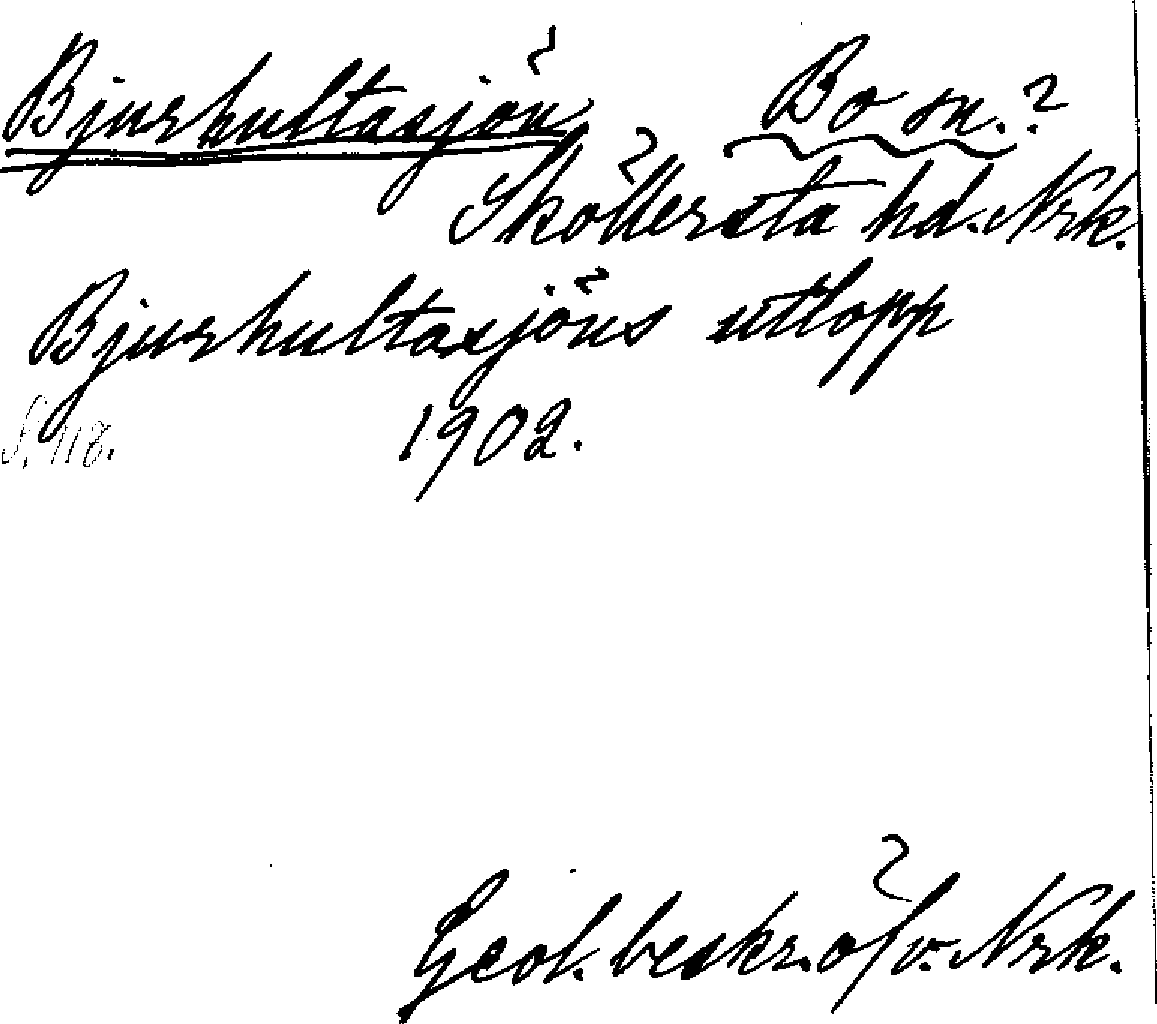 Bjurhultasjön Bo sn.?
Sköllersta hd. Nrk.
Bjurhultasjöns utlopp
S. 118. 1902.
Geol. beskr. öfv. Nrk.